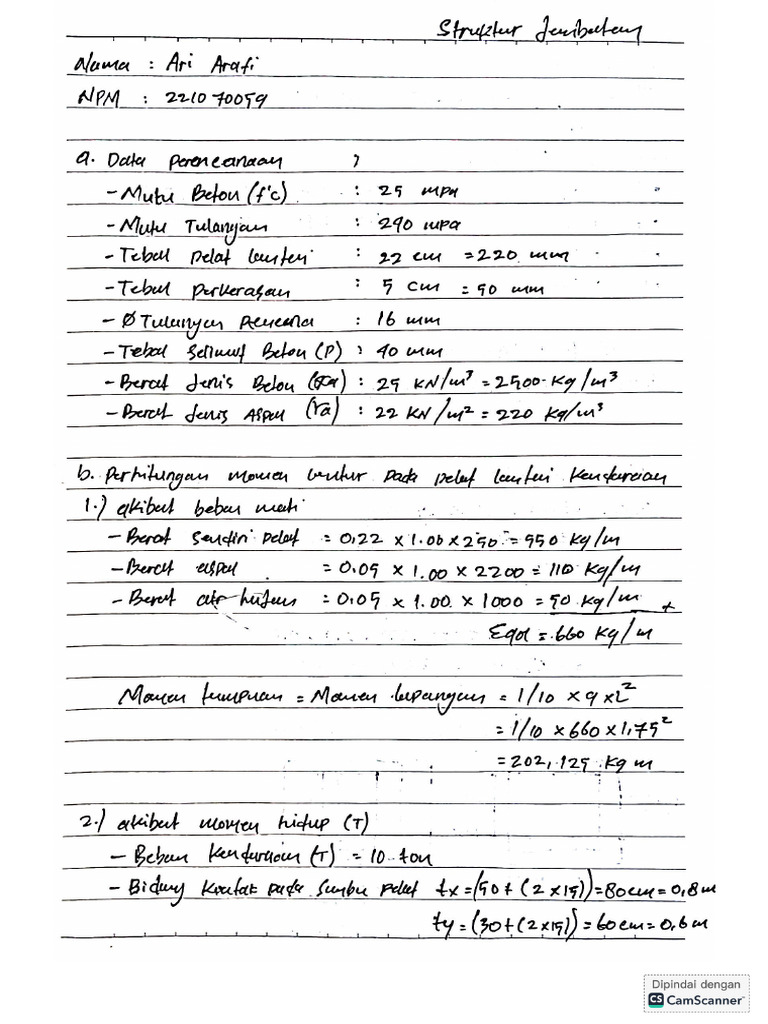 Struktur Jembatan
Nama : Ari Arafi
NPM : 221070059
a. Data Perencanaan :
- Mutu Beton (f'c) : 25 mpa
- Mutu Tulangan : 240 mpa
- Tebal pelat lantai : 22 cm = 220 mm
- Tebal perkerasan : 5 cm = 50 mm
- Ø Tulangan rencana : 16 mm
- Tebal Selimut Beton (P) : 40 mm
- Berat Jenis Beton : 25 KN/m³ = 2500 Kg/m³
- Berat Jenis Aspal (γa) : 22 KN/m² = 220 kg/m³
b. Perhitungan momen lentur pada pelat lantai Kendaraan
1.) akibat beban mati
- Berat sendiri pelat = 0,22 x 1.00 x 250 = 550 kg/m
- Berat aspal = 0.05 x 1.00 x 2200 = 110 Kg/m
- Berat air hujan = 0.05 x 1.00 x 1000 = 50 Kg/m +
Eqdl = 660 Kg/m
Momen tumpuan = Momen lapangan = 1/10 x q x L²
= 1/10 x 660 x 1,75²
= 202,125 Kg m
2.) akibat momen hidup (T)
- Beban Kendaraan (T) = 10 ton
- Bidang Kontak pada sumbu pelat tx = (50 + (2 x 15)) = 80 cm = 0,8 m
ty = (30 + (2 x 15)) = 60 cm = 0,6 m
Dipindai dengan
CS CamScanner